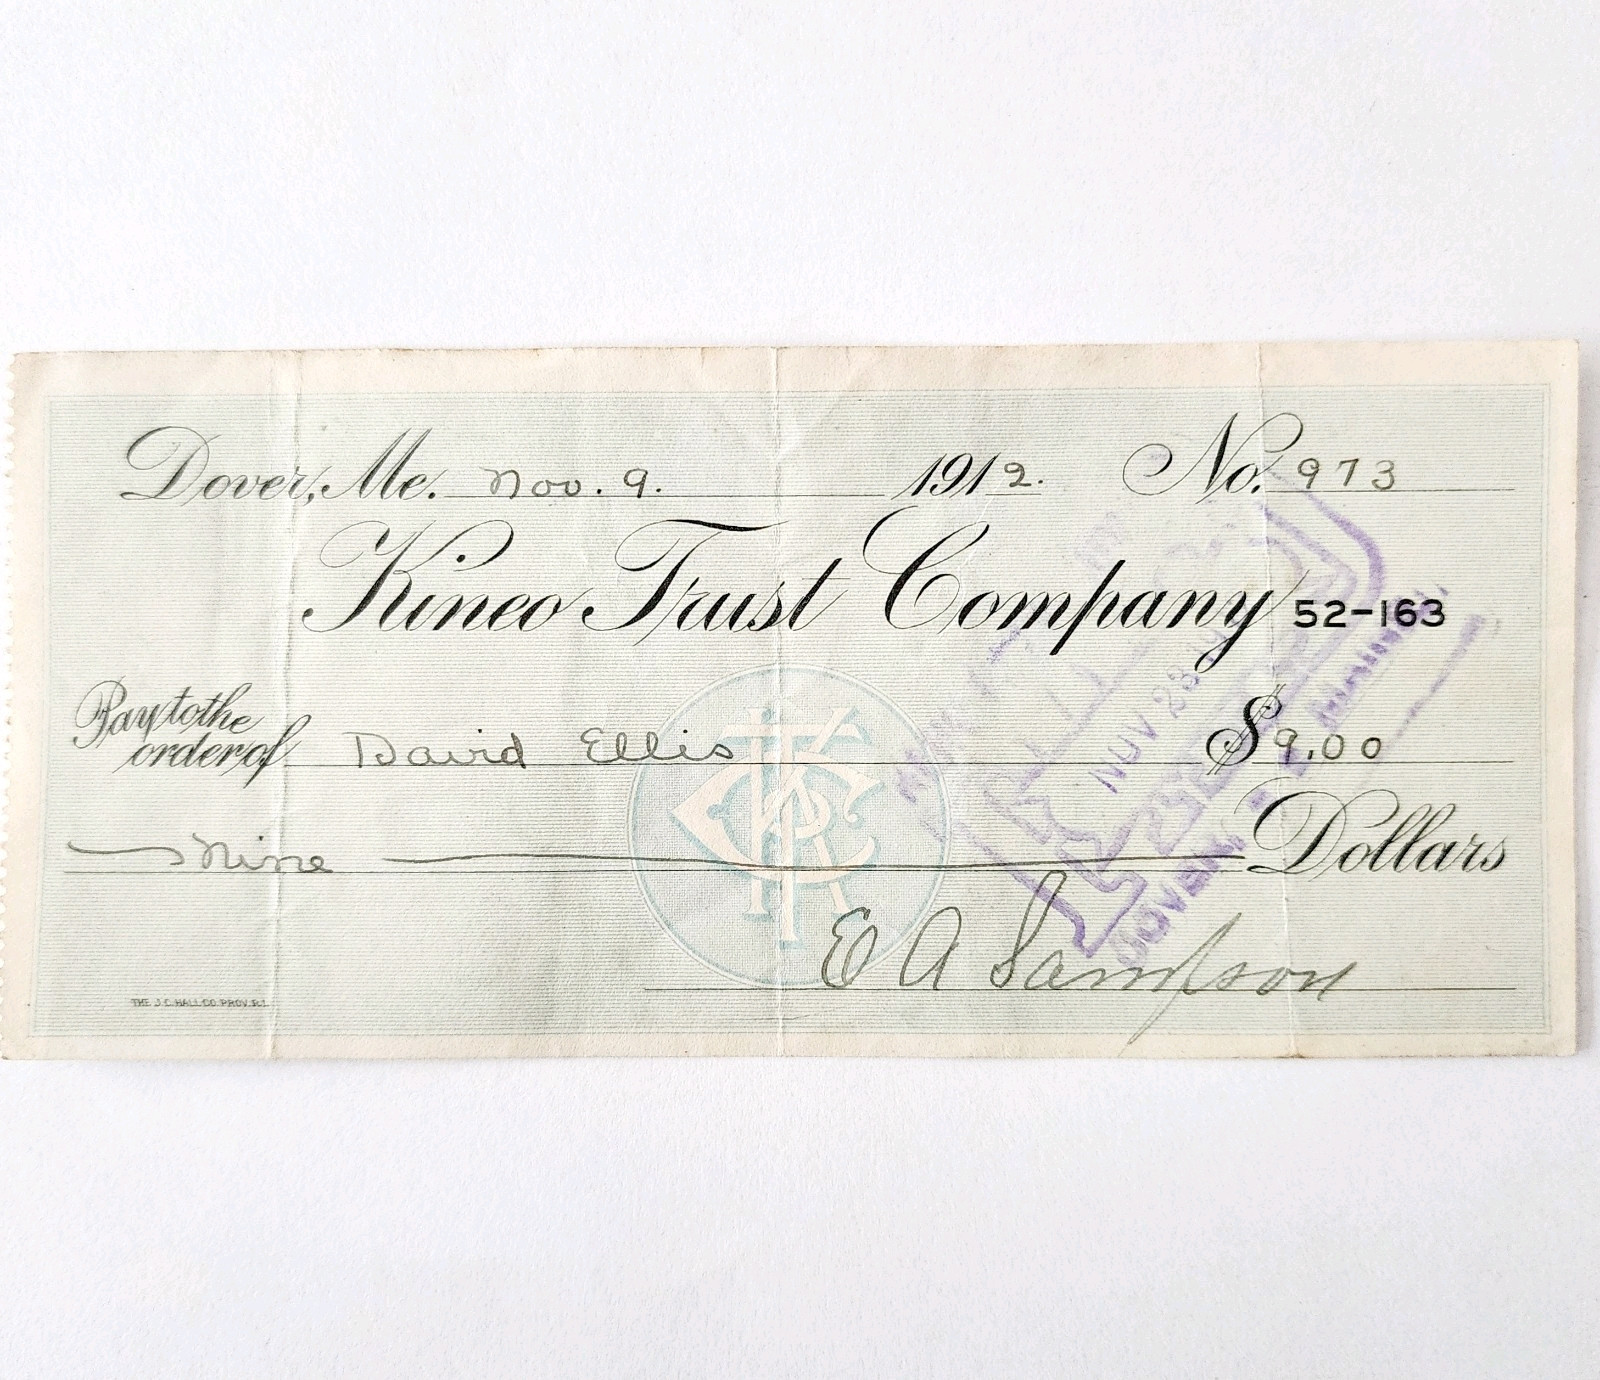 Dover, Me. Nov. 9. 1912. No. 973
Kineo Trust Company 52-163
Pay to the
order of David Ellis $9.00
Nine Dollars
E A Sampson
THE J.C. HALL CO. PROV. R.I.
NOV 23
DOVER,